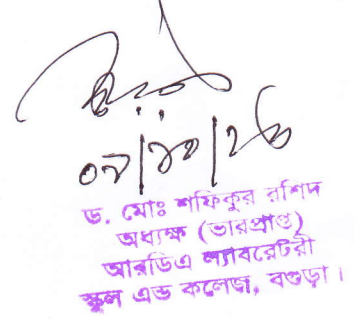 ড. মোঃ শফিকুর রশিদ
অধ্যক্ষ (ভারপ্রাপ্ত)
আরডিএ ল্যাবরেটরী
স্কুল এন্ড কলেজ, বগুড়া।